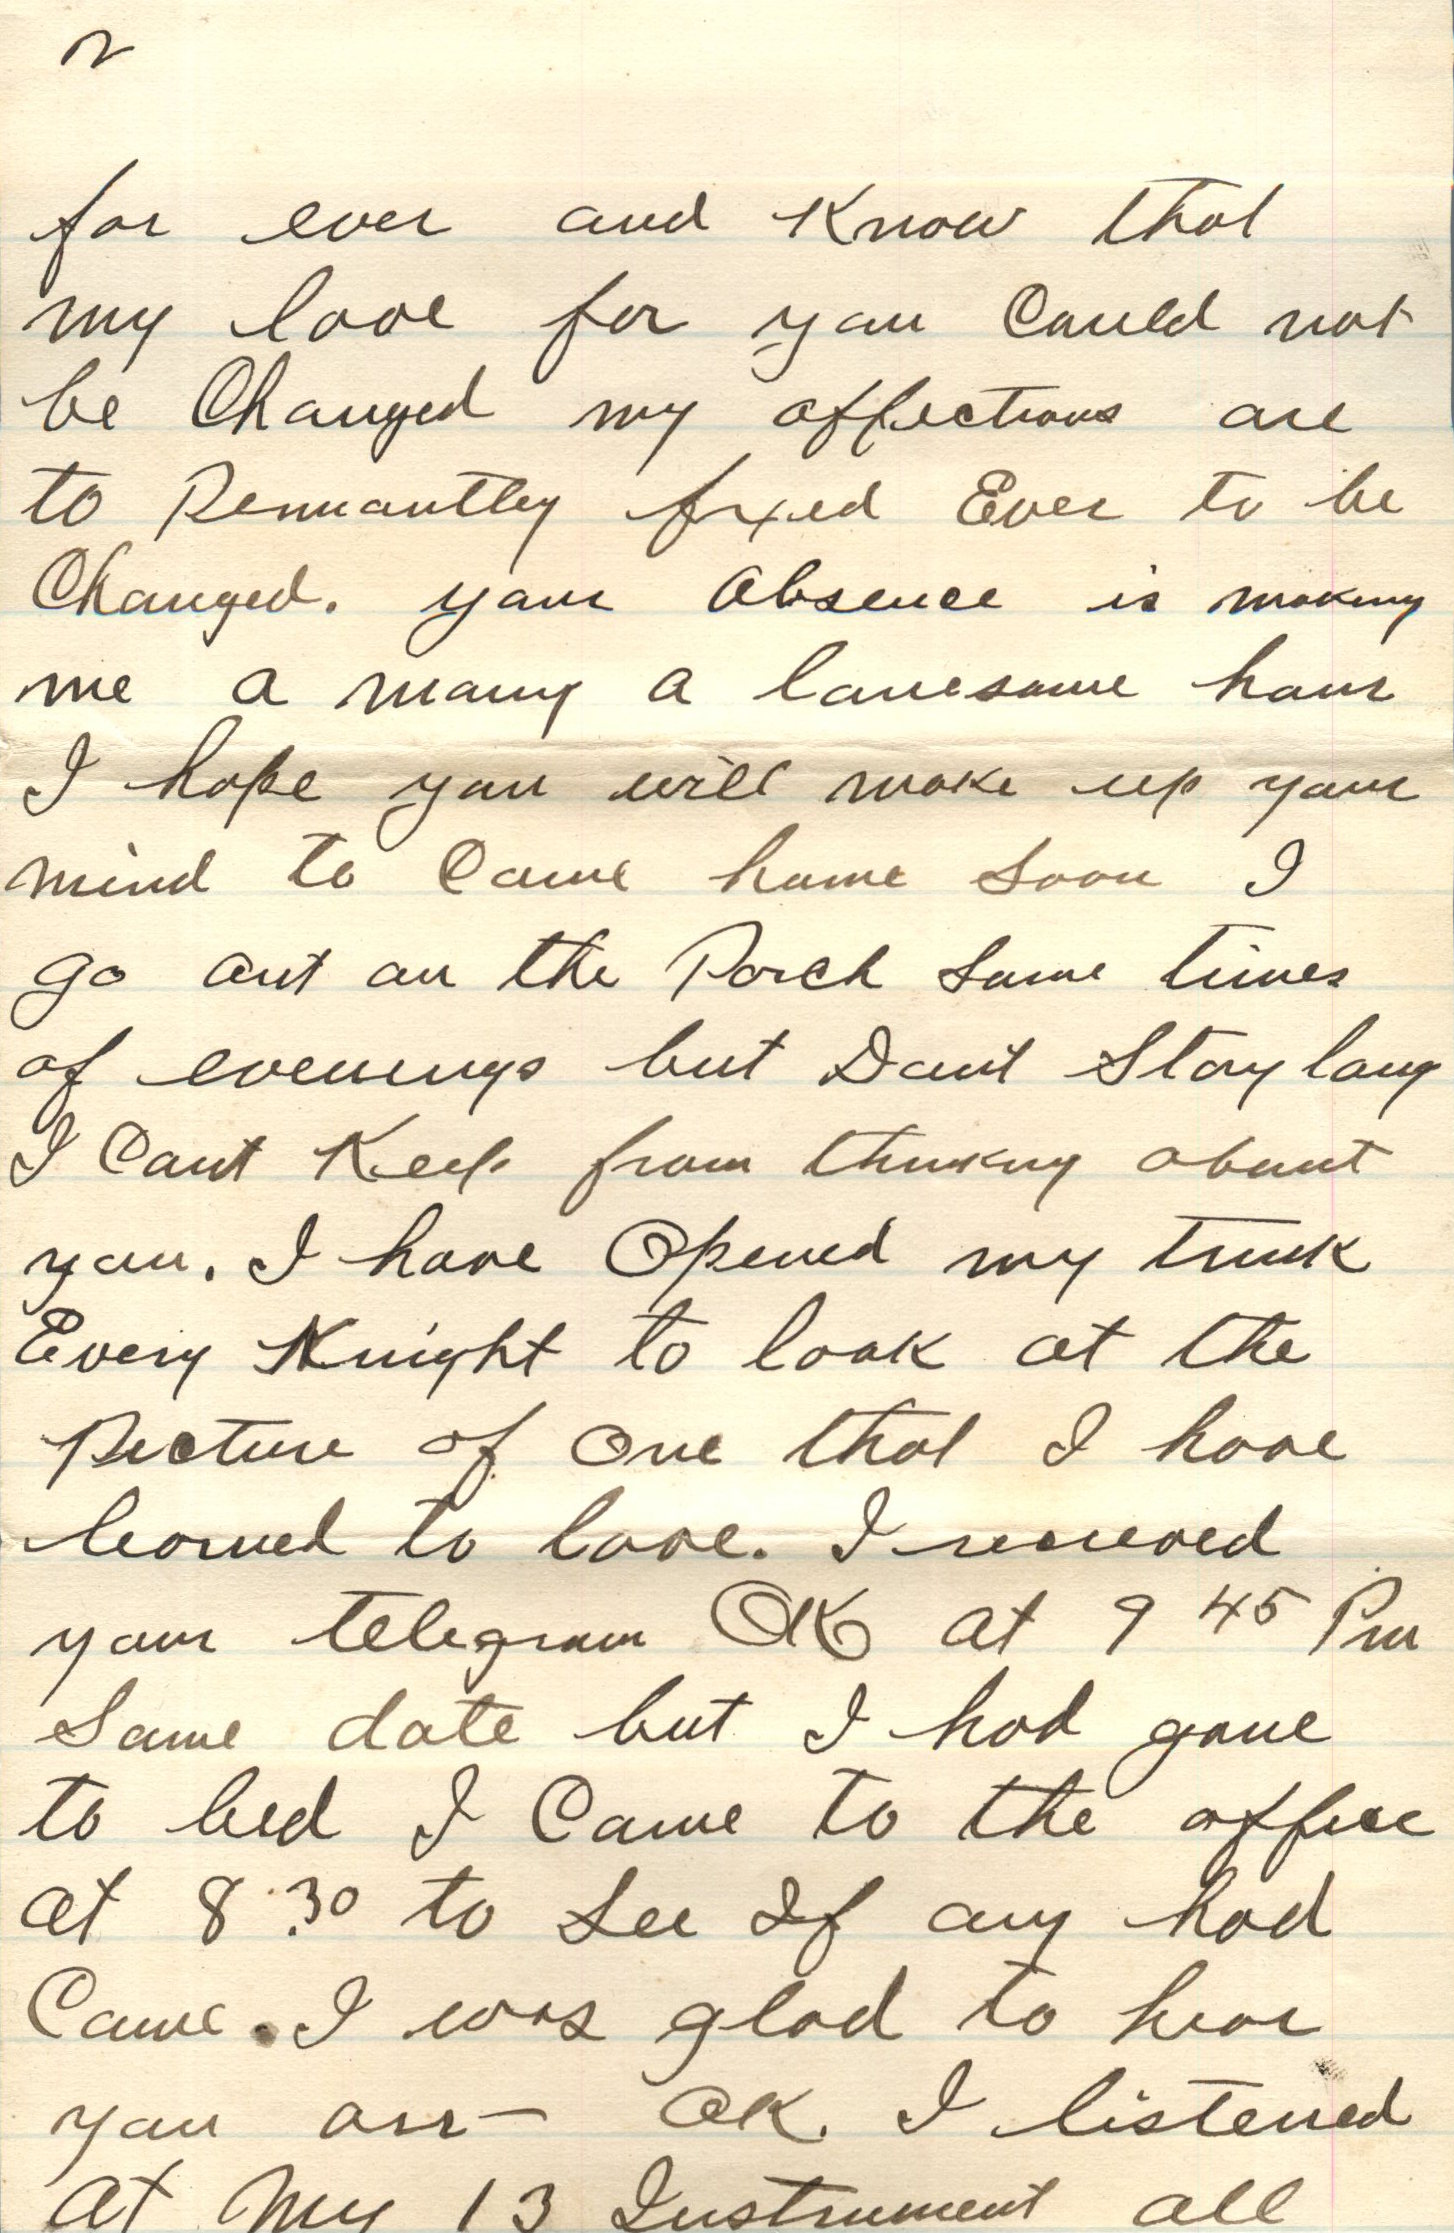 2
for ever and Know that
my love for you Could not
be Changed my affections are
to Permantley fixed Ever to be
Changed. your Absence is making
me a many a lonesome hour
I hope you will make up your
mind to Come home soon I
go out on the Porch some times
of evenings but Don't Stay long
I Cant Keep from thinking about
you. I have Opened my trunk
Every Knight to look at the
Picture of one that I have
learned to love. I received
your telegram OK at 9 45 Pm
Same date but I had gone
to bed I Came to the office
at 8:30 to See If any had
Came. I was glad to hear
you arr— OK. I listened
at My 13 Instrument all